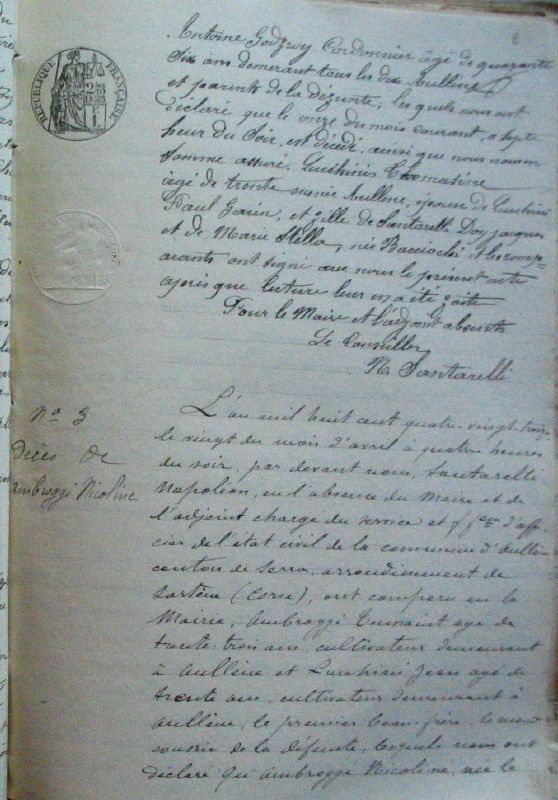 RÉPUBLIQUE FRANÇAISE
Antoine Godfroy Cordonnier âgé de quarante
Six ans demeurant tous les deux Aullène
et parents de la défunte, les quels nous ont
déclaré que le onze du mois courant, a sept
heur du Soir, est décédé, ainsi que nous nous en
Somme assuré, Luchinii Thomasine
âgé de trente née Aullene, épouse de Luchini
Paul et fille de Santarelli Don Jacques
et de Marie Stella, née Bacciochi et les comp-
arants ont signé avec nous le présent acte
après que lecture leur en a été faite
Pour le Maire et l'adjoint absents
Le Conseiller
N. Santarelli
No 3
Décès de
Ambroggi Nicoline
L'an mil huit cent quatre-vingt treize
le vingt du mois d'avril à quatre heures
du soir, par devant nous, Santarelli
Napoléon, en l'absence du Maire et de
l'adjoint chargé du service et d'offi-
cier de l'état civil de la commune d'Aullène
canton de Serra, arrondissement de
Sartène (Corse), ont comparu en la
Mairie, Ambroggi Toussaint agé de
trente-trois ans, cultivateur demeurant
à Aullène et Lucchini Jean agé de
trente ans, cultivateur demeurant à
Aullène, le premier beau-frère, le
cousin de la défunte, lesquels nous ont
déclaré qui Ambroggi Nicoline, née le